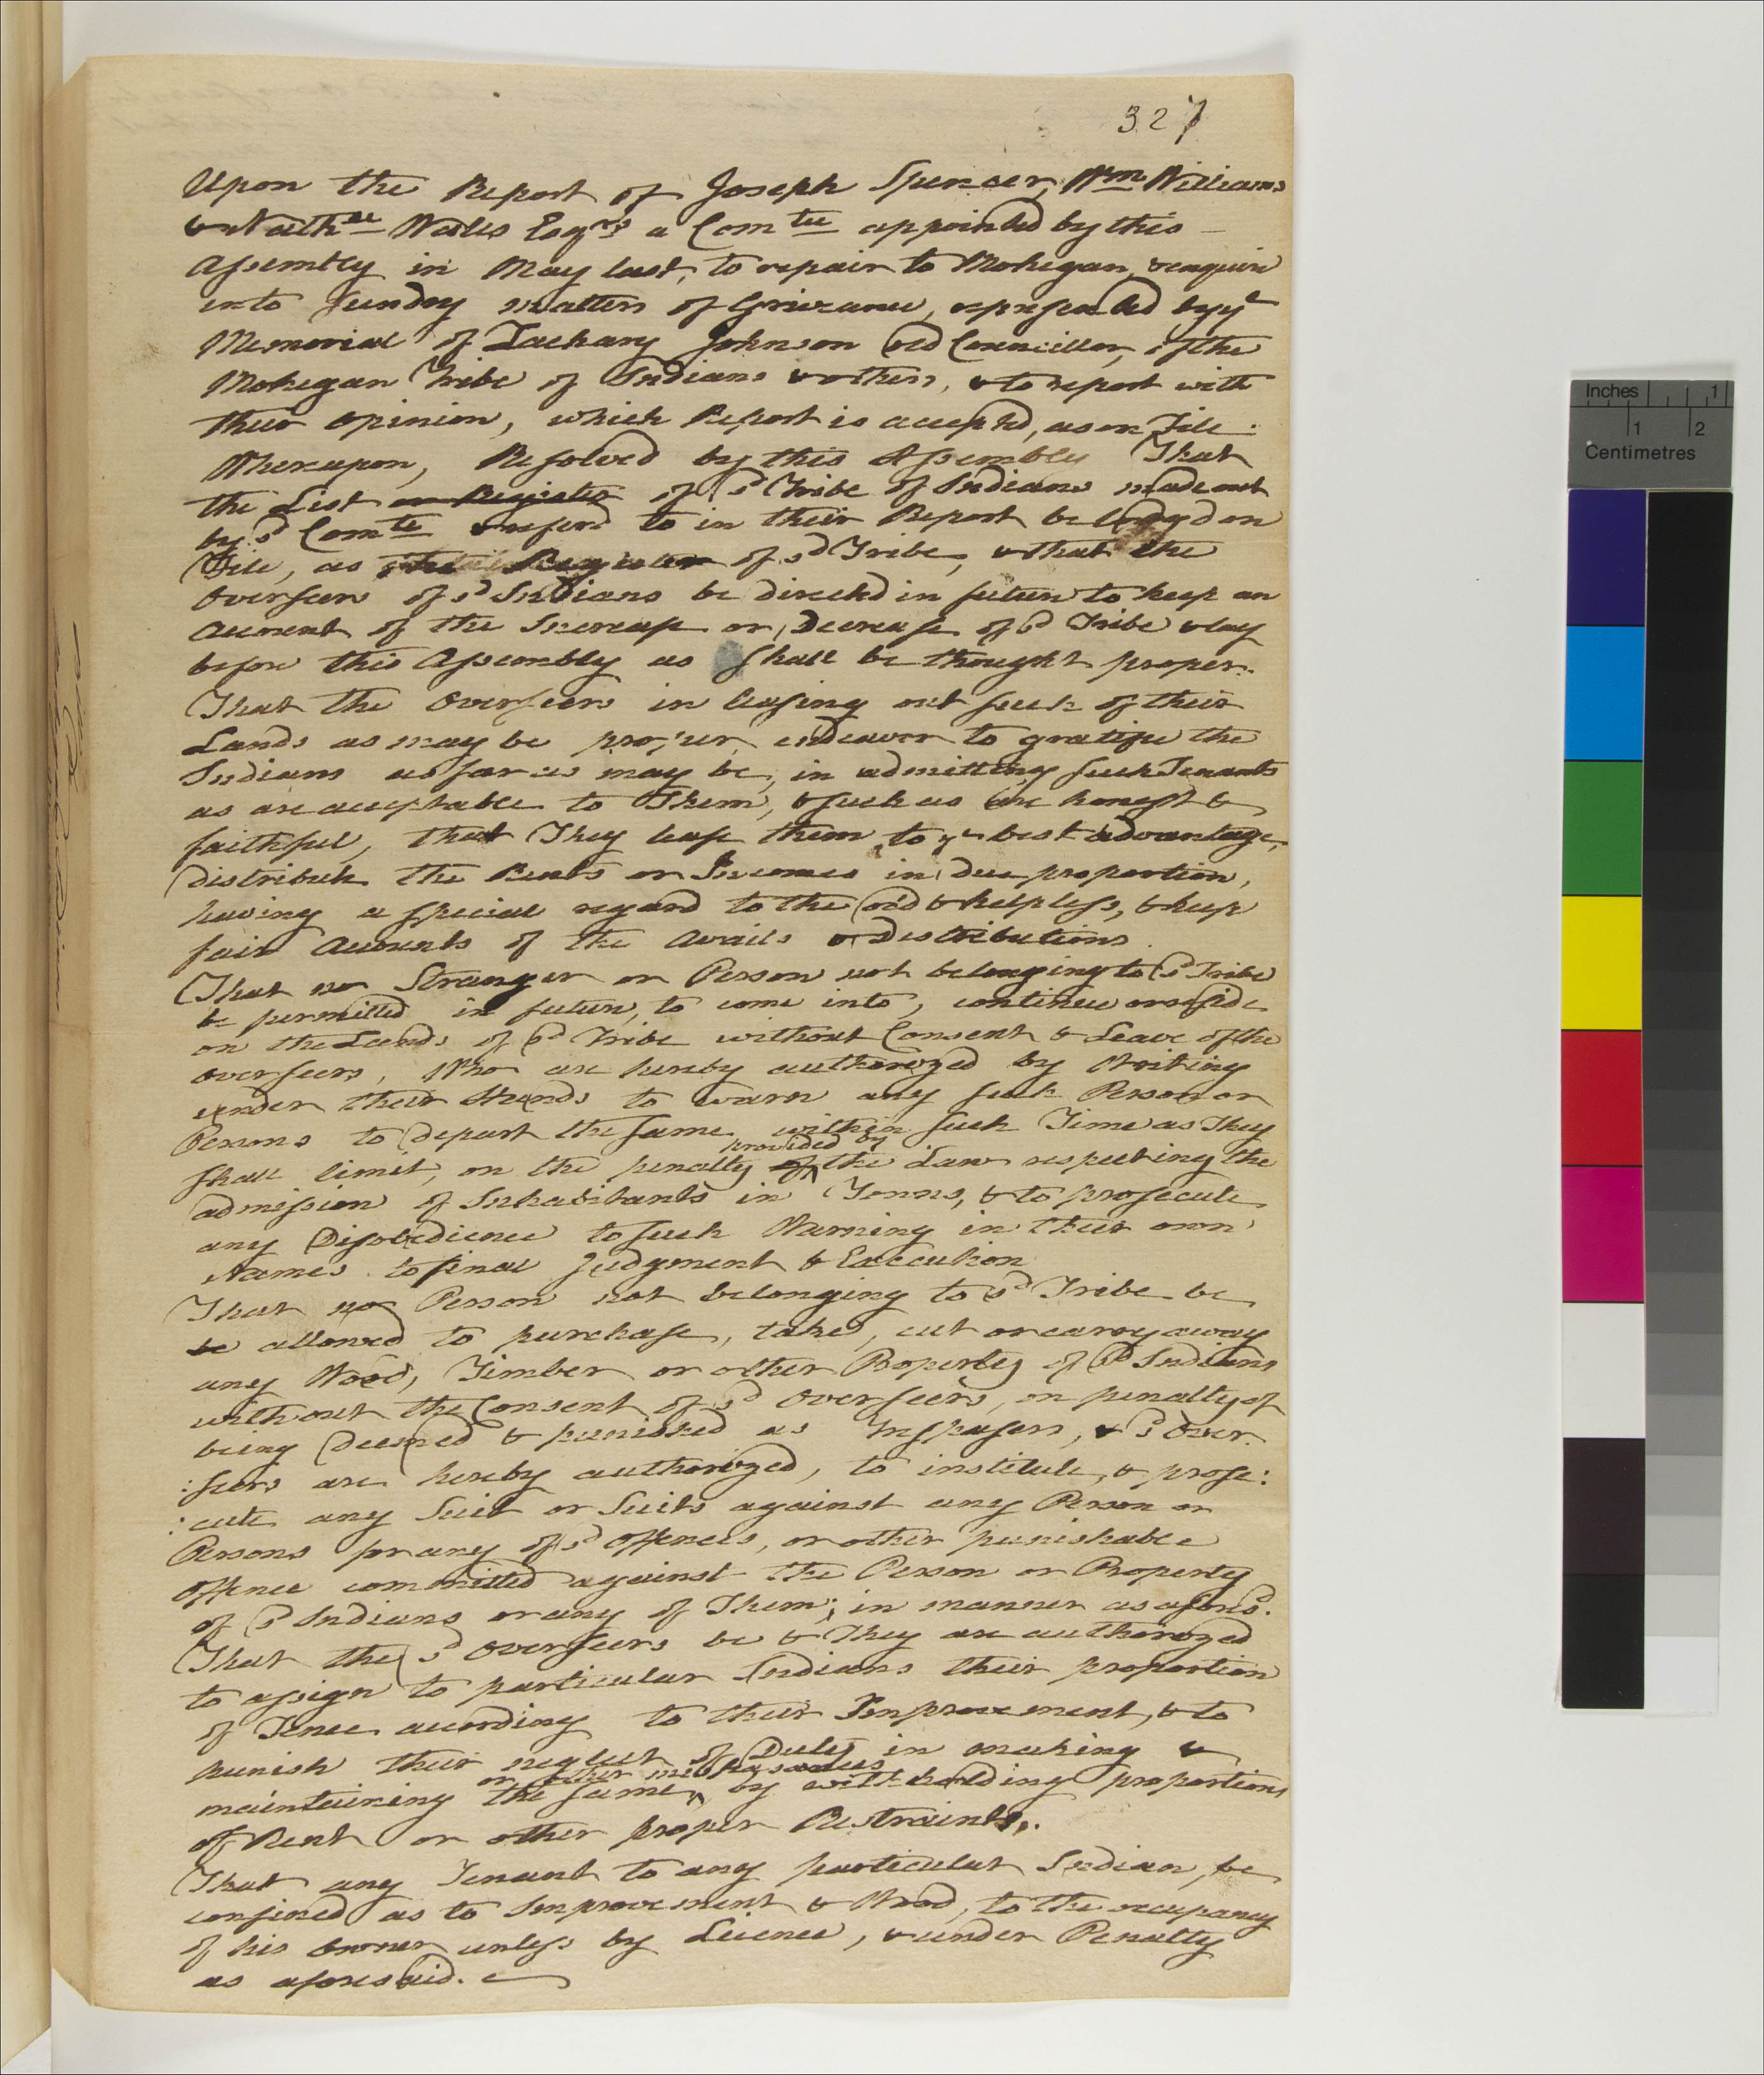 327
Upon the Report of Joseph Spencer, Wm Williams
& Nathll Wales Esqrs a Comtee appointed by this
Assembly in May last, to repair to Mohegan, & enquire
into sundry matters of Grievance, represented by ye
Memorial of Zachary Johnson old Councillor, of the
Mohegan Tribe of Indians & others, & to report with
their opinion, which Report is accepted, as on File:
Whereupon, Resolved by this Assembly That
the List or Register of sd Tribe of Indians made out
by sd Comte & referd to in their Report be lodgd on
File, as the Register of sd Tribe, & that the
Overseers of sd Indians be directed in future to keep an
Account of the Increase or Decrease of sd Tribe & lay
before this Assembly as shall be thought proper.
That the Overseers in leasing out such of their
Lands as may be proper, endeavor to gratifie the
Indians as far as may be, in admitting such Tenants
as are acceptable to Them, & such as are honest &
faithful, that They lease them to ye best advantage,
distribute the Rents or Incomes in due proportion,
having a special regard to the old & helpless, & keep
fair Accounts of the Avails & Distributions.
That no Stranger or Person not belonging to sd Tribe
be permitted in future, to come into, continue or reside
on the Lands of sd Tribe without Consent & Leave of the
Overseers, Who are hereby authorized by Writing
under their Hands to warn any such Person or
Persons to depart the same within such Time as They
shall limit, on the penalty of provided by the Law respecting the
admission of Inhabitants in Towns, & to prosecute
any Disobedience to such Warning in their own
Names to final Judgment & Execution
That no Person not belonging to sd Tribe be
be allowed to purchase, take, cut or carry away
any Wood, Timber or other Property of sd Indians
without the Consent of sd Overseers, on penalty of
being deemed & punished as Trespasers, & sd Over
:seers are hereby authorized, to institute, & prose:
:cute any Suit or Suits against any Person or
Persons for any of sd Offences, or other punishable
Offence committed against the Person or Property
of sd Indians or any of Them; in manner as aforesd.
That the sd Overseers be & They are authorized
to assign to particular Indians their proportion
of Fence according to their Improvement, & to
punish their neglect of Duty in making &
or other misfeasances
maintaining the same, by withholding proportions
of Rent or other proper Restraints.
That any Tenant to any particular Indian, be
confined as to Improvement & Wood, to the occupancy
of his Owner unless by Licence, & under Penalty
as aforesaid.
Inches 1
1 2
Centimetres